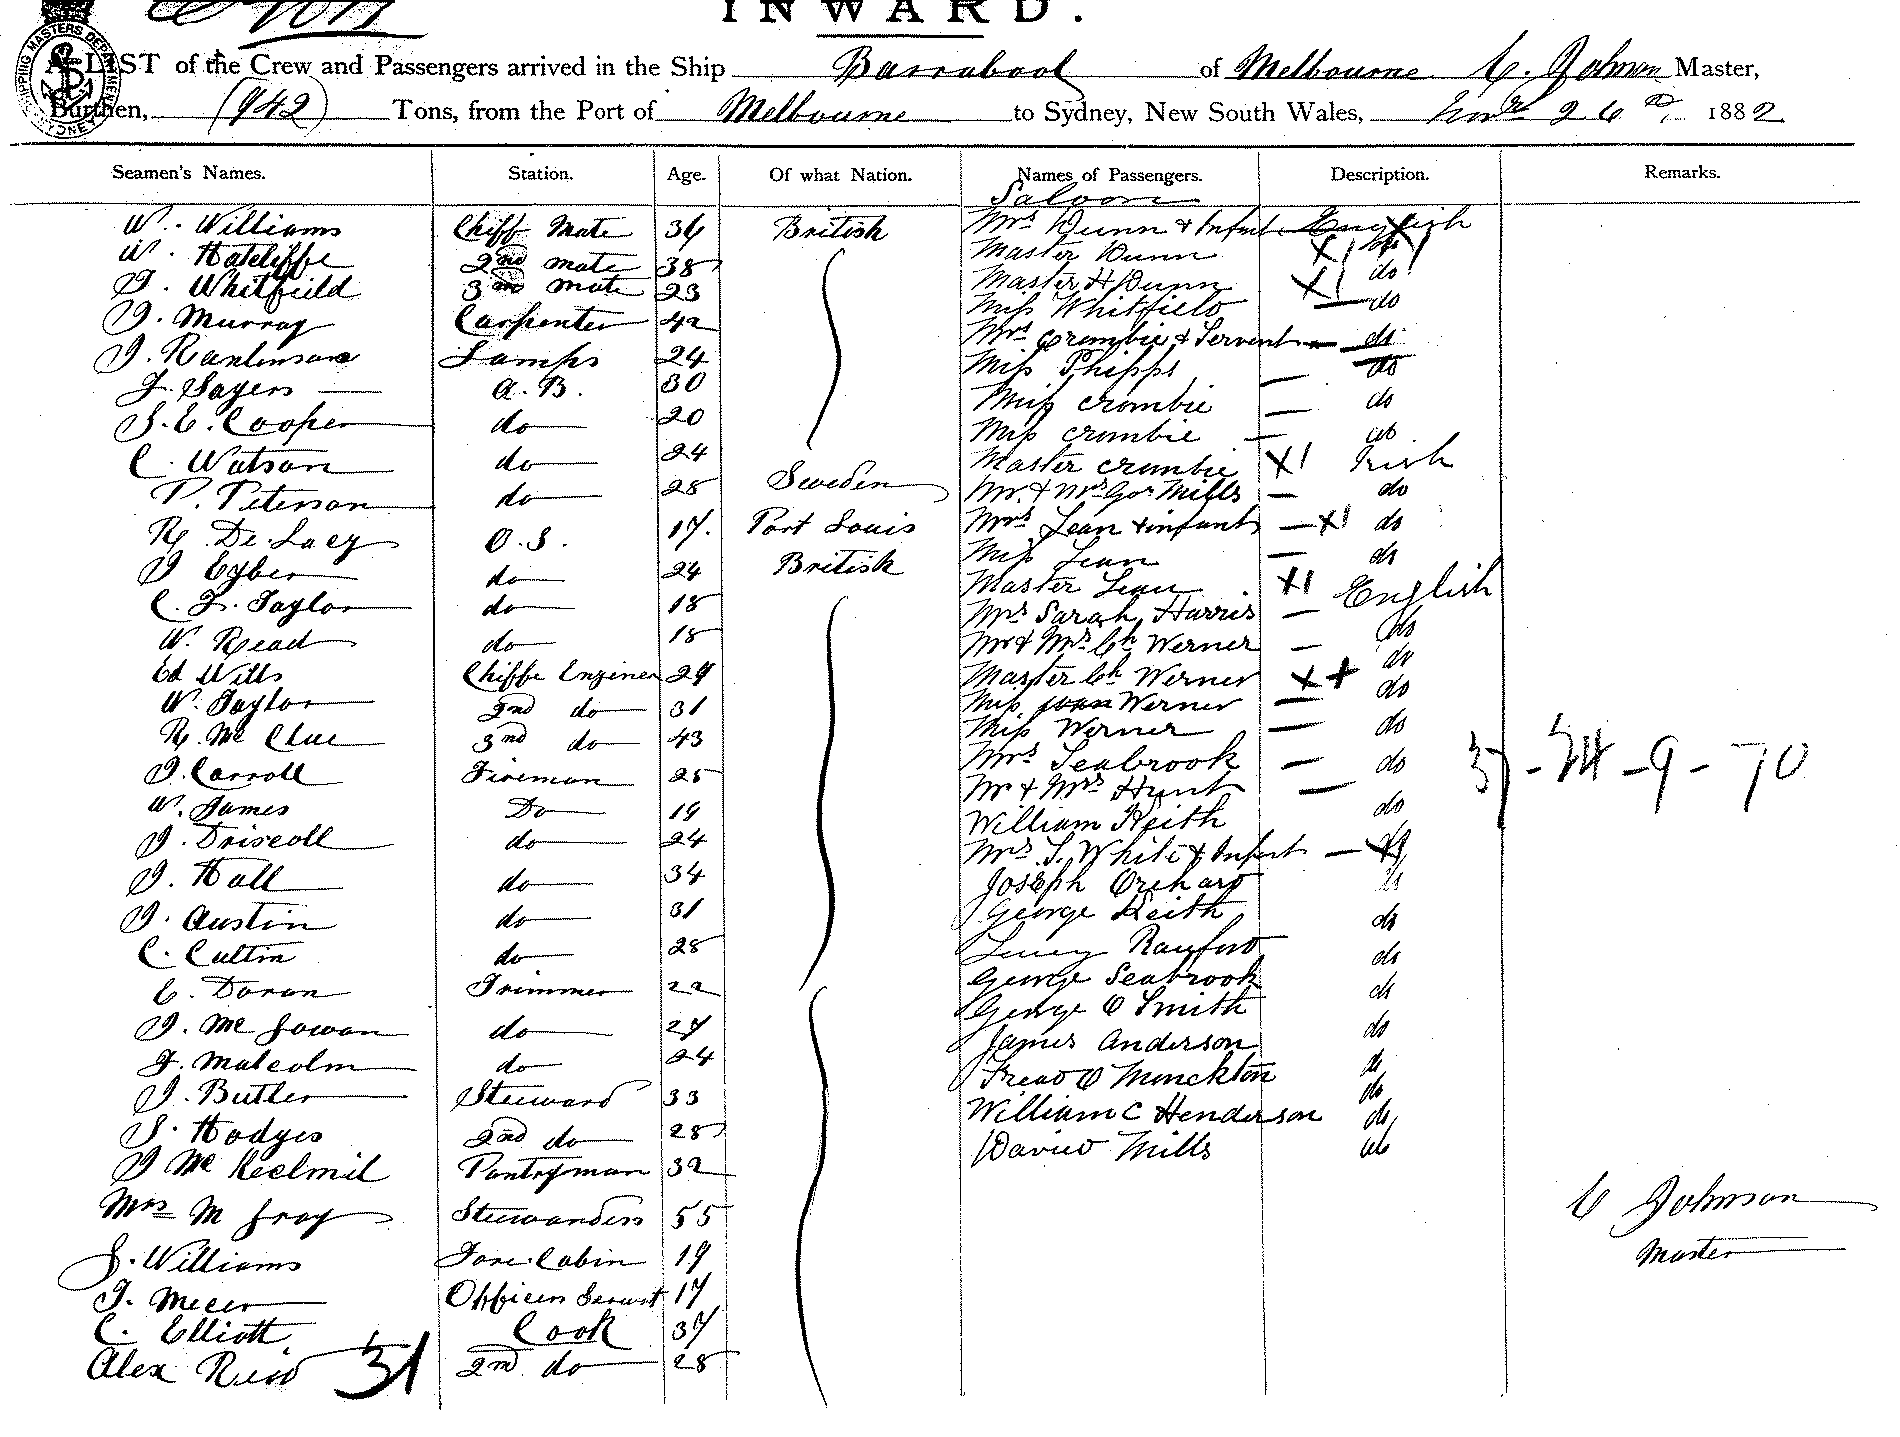 INWARD.
A LIST of the Crew and Passengers arrived in the Ship Barrabool of Melbourne C. Johnson Master,
Burthen, (942) Tons, from the Port of Melbourne to Sydney, New South Wales, 26th 1882
Seamen's Names. Station. Age. Of what Nation. Names of Passengers. Description. Remarks.
Saloon
W. Williams Chiff Mate 36 British Mrs Dunn & Infant English
W. Hatcliffe 2nd mate 38 Master Dunn do
J. Whitfield 3rd mate 23 Master H Dunn do
J. Murray Carpenter 42 Miss Whitfield do
J. Ranlinson Lamps 24 Mrs Crombie & Servent do
J. Sayers A.B. 30 Miss Phipps do
S. E. Cooper do 20 Miss Crombie do
C. Watson do 24 Miss Crombie do
P. Peterson do 28 Sweden Master Crombie Irish
Mr. & Mrs Geo Mills do
R. De Lacy O.S. 17. Port Louis Mrs Lean & infant do
J Eyber do 24 British Miss Lean do
C. F. Taylor do 18 Master Lean English
W. Read do 18 Mrs Sarah Harris do
Ed Wills Chiffe Enginer 29 Mr & Mrs Ch Werner do
W. Taylor 2nd do 31 Master Ch Werner do
R. Mc Clue 3rd do 43 Miss Werner
J. Carroll Fireman 25 Miss Werner do
W. James Do 19 Mrs Seabrook do
J. Driscoll do 24 Mr & Mrs Hunt
J. Hall do 34 William Keith do
J. Austin do 31 Mrs S. White & Infant
C. Cultin do 28 Joseph Orchard do
C. Doran Trimmer 22 George Keith do
J. Mc Gowan do 27 Rayford do
J. Malcolm do 24 George Seabrook do
J. Butler Steward 33 George O Smith
S. Hodges 2nd do 28 James Anderson do
J Mc Keelmil Pantryman 32 Fread O Monckton do
Mrs M Gray Stewardess 55 William C Henderson do
J. Williams Fore Cabin 19 David Mills do
J. Mecer Officers Servant 17
C. Elliott Cook 37
Alex Reid 2nd do 28
31
37 - 24 - 9 - 70
C Johnson
Master